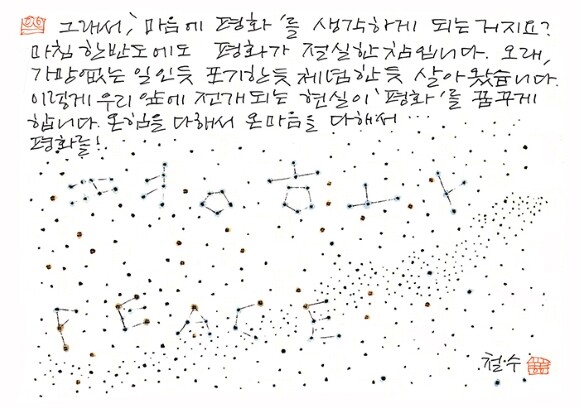 그래서, '마음에 평화'를 생각하게 되는거지요?
마침 한반도에도 평화가 절실한 참입니다. 오래,
가망없는 일인듯 포기한듯 체념한 듯 살아왔습니다.
이렇게 우리 앞에 전개되는 현실이 '평화'를 꿈꾸게
합니다. 온힘을 다해서 온마음을 다해서…
평화를!
PEACE
철수